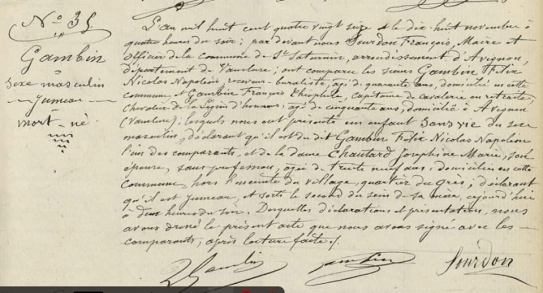 N.º 35
Gambin
Sexe masculin
Jumeau
mort-né
L'an mil huit cent quatre vingt seize et le dix-huit novembre à
quatre heures du soir; par devant nous Sourdon François, Maire et
officier de la Commune de St Saturnin, arrondissement d'Avignon,
département de Vaucluse, ont comparu les sieurs Gambin Félix
Nicolas Napoléon, âgé de quarante ans, domicilié en cette
commune, et Gambin François Théophile, capitaine de cavalerie en retraite,
Chevalier de la Légion d'honneur, âgé de cinquante ans, domicilié à Avignon
(Vaucluse), lesquels nous ont présenté un enfant sans vie du sexe
masculin, déclarant qu'il est du dit Gambin Félix Nicolas Napoléon
l'un des comparants, et de la dame Chautard Joséphine Marie, son
épouse, sans profession, âgée de trente neuf ans, domiciliée en cette
Commune, hors l'enceinte du village, quartier du Grès; déclarant
qu'il est Jumeau, et sorti le second du sein de sa mère, cejourd'hui
à deux heures du soir. Desquelles déclarations et présentation, nous
avons dressé le présent acte que nous avons signé avec les
comparants, après lecture faite.
Gambin Gambin Sourdon